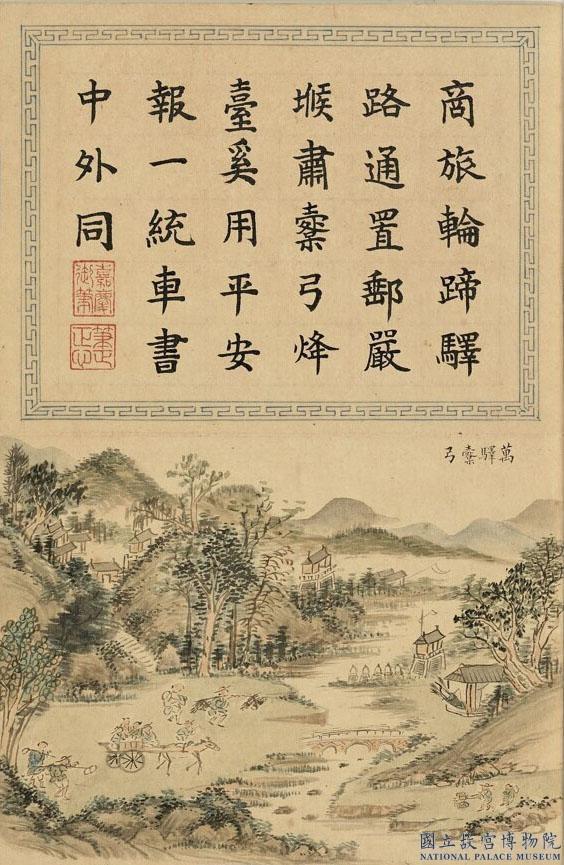 商旅輪蹄驛
路通置郵嚴
堠肅櫜弓烽
臺奚用平安
報一統車書
中外同
嘉慶
御筆
萬驛櫜弓
國立故宮博物院
NATIONAL PALACE MUSEUM